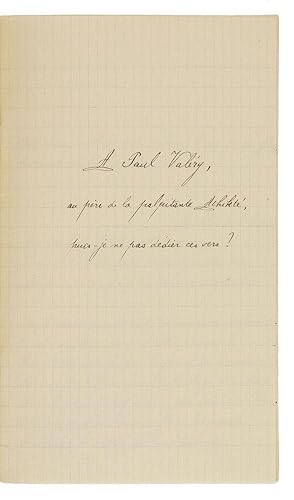 A Paul Valéry,
au père de la palpitante Athikté,
puis-je ne pas dédier ces vers ?